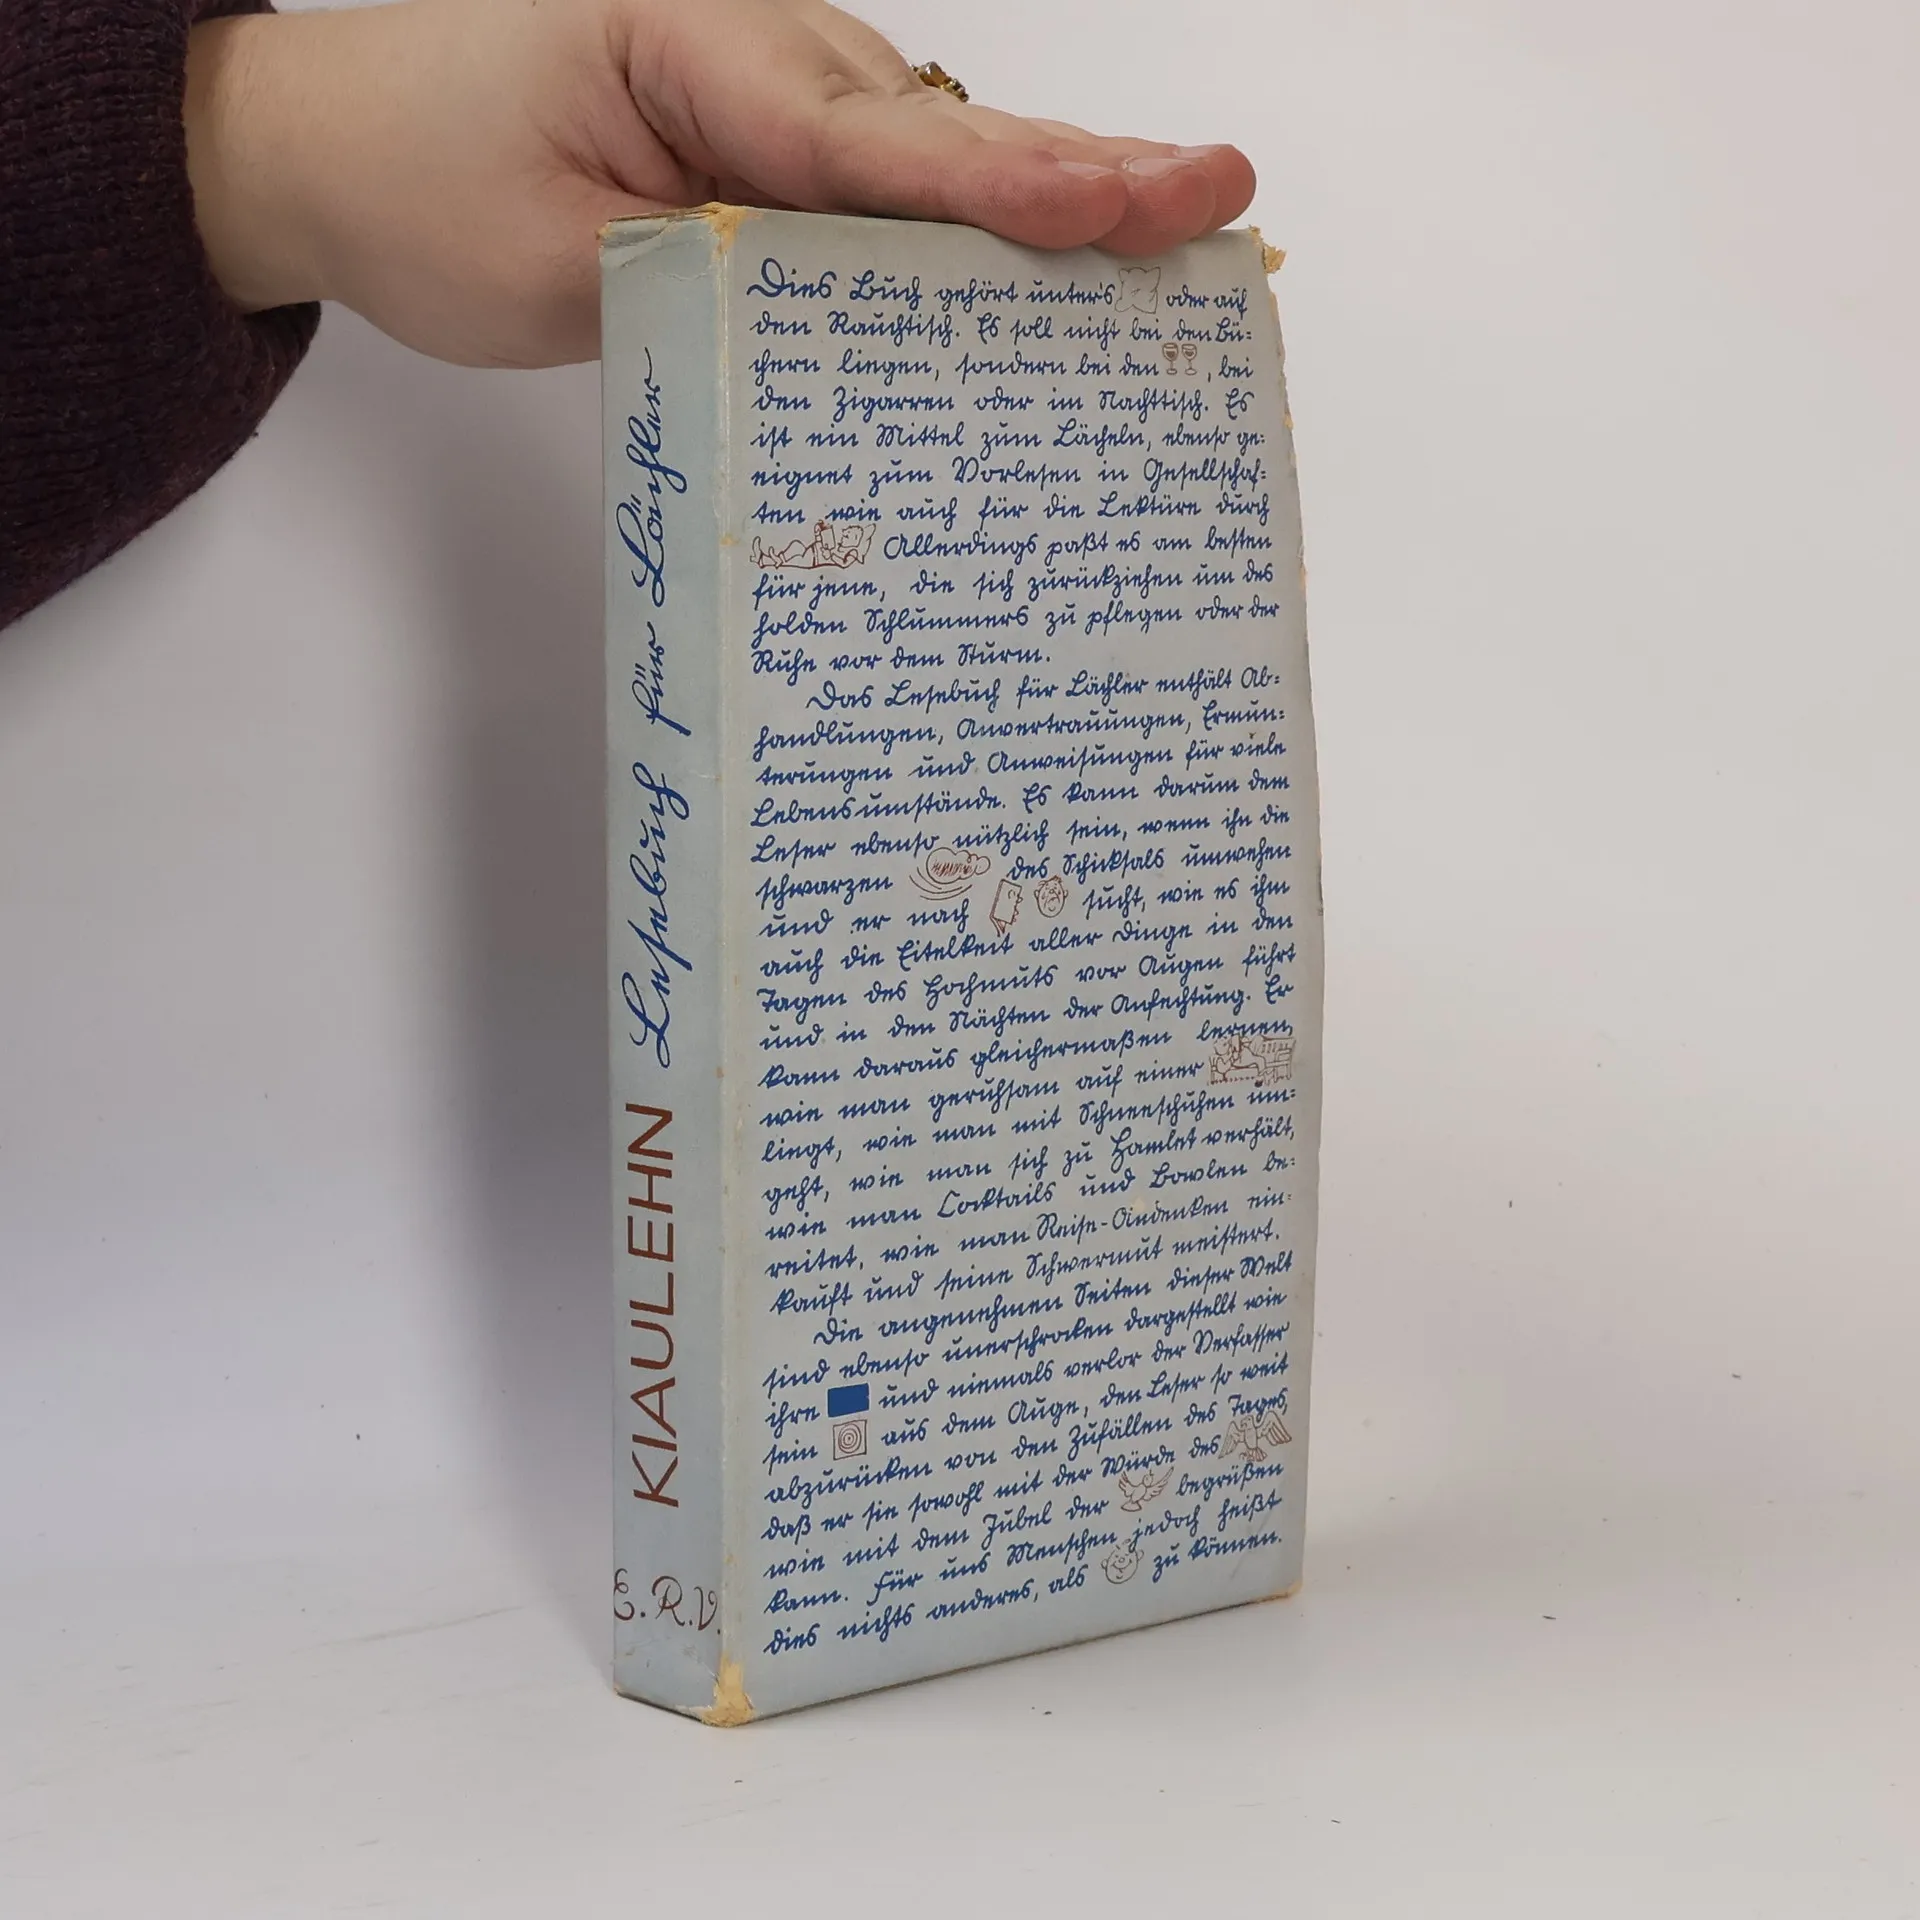 KIAULEHN Lesebuch für Lächler
E. R. V.
Dies Buch gehört unter's oder auf
den Rauchtisch. Es soll nicht bei den Bü=
chern liegen, sondern bei den , bei
den Zigarren oder im Nachttisch. Es
ist ein Mittel zum Lächeln, ebenso ge=
eignet zum Vorlesen in Gesellschaf=
ten wie auch für die Lektüre durch
Allerdings paßt es am besten
für jene, die sich zurückziehen um des
holden Schlummers zu pflegen oder der
Ruhe vor dem Sturm.
Das Lesebuch für Lächler enthält Ab=
handlungen, Anvertrauungen, Ermun=
terungen und Anweisungen für viele
Lebensumstände. Es kann darum dem
Leser ebenso nützlich sein, wenn ihn die
schwarzen des Schicksals umwehen
und er nach sucht, wie es ihm
auch die Eitelkeit aller Dinge in den
Tagen des Hochmuts vor Augen führt
und in den Nächten der Anfechtung. Er
kann daraus gleichermaßen lernen,
wie man geruhsam auf einer
liegt, wie man mit Schneeschuhen um=
geht, wie man sich zu Hamlet verhält,
wie man Cocktails und Bowlen be=
reitet, wie man Reise-Andenken ein=
kauft und seine Schwermut meistert.
Die angenehmen Seiten dieser Welt
sind ebenso unerschrocken dargestellt wie
ihre und niemals verlor der Verfasser
sein aus dem Auge, den Leser so weit
abzurücken von den Zufällen des Tages,
daß er sie sowohl mit der Würde des
wie mit dem Jubel der begrüßen
kann. Für uns Menschen jedoch heißt
dies nichts anderes, als zu können.